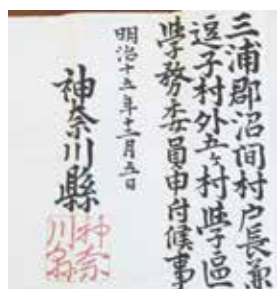 三浦郡沼間村戸長兼
逗子村外五ヶ村学区
学務委員申付候事
明治十五年十二月五日
神奈川縣
神奈
川縣